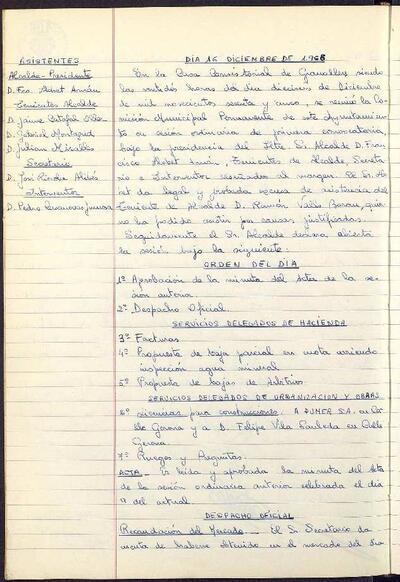 ASISTENTES
Alcalde-Presidente
D. Fco.
Tenientes Alcalde
D. Jaime
D. Gabriel Montagud
D. Julian Miralles
Secretario
D. José
Interventor
D. Pedro
DÍA 16 DICIEMBRE DE 1965
En la Casa Consistorial de Granollers siendo
las veintidós horas del día dieciseis de Diciembre
de mil novecientos sesenta y cinco, se reunió la Co-
misión Municipal Permanente de este Ayuntamien-
to en sesión ordinaria de primera convocatoria,
bajo la presidencia del Iltre. Sr. Alcalde D. Fran-
cisco Tenientes de Alcalde, Secreta-
rio e Interventor reseñados al margen. El Sr. Al-
calde da legal y probada excusa de asistencia del
Teniente de Alcalde D. Ramón Vallés que
no ha podido asistir por causas justificadas.
Seguidamente el Sr. Alcalde declara abierta
la sesión bajo la siguiente:
ORDEN DEL DIA
1º Aprobación de la minuta del Acta de la se-
sión anterior.
2º Despacho Oficial.
SERVICIOS DELEGADOS DE HACIENDA
3º Facturas
4º Propuesta de baja parcial en cuota arriendo
inspección agua mineral
5º Propuesta de bajas de Arbitrios.
SERVICIOS DELEGADOS DE URBANIZACION Y OBRAS
6º Licencias para construcciones. A S.A. en Ca-
lle Gerona y a D. Felipe Vila en Calle
Gerona.
7º Ruegos y Preguntas.
ACTA.- Es leída y aprobada la minuta del Acta
de la sesión ordinaria anterior celebrada el día
9 del actual.
DESPACHO OFICIAL
Recaudación del Mercado.- El Sr. Secretario da
cuenta de haberse obtenido en el mercado del día